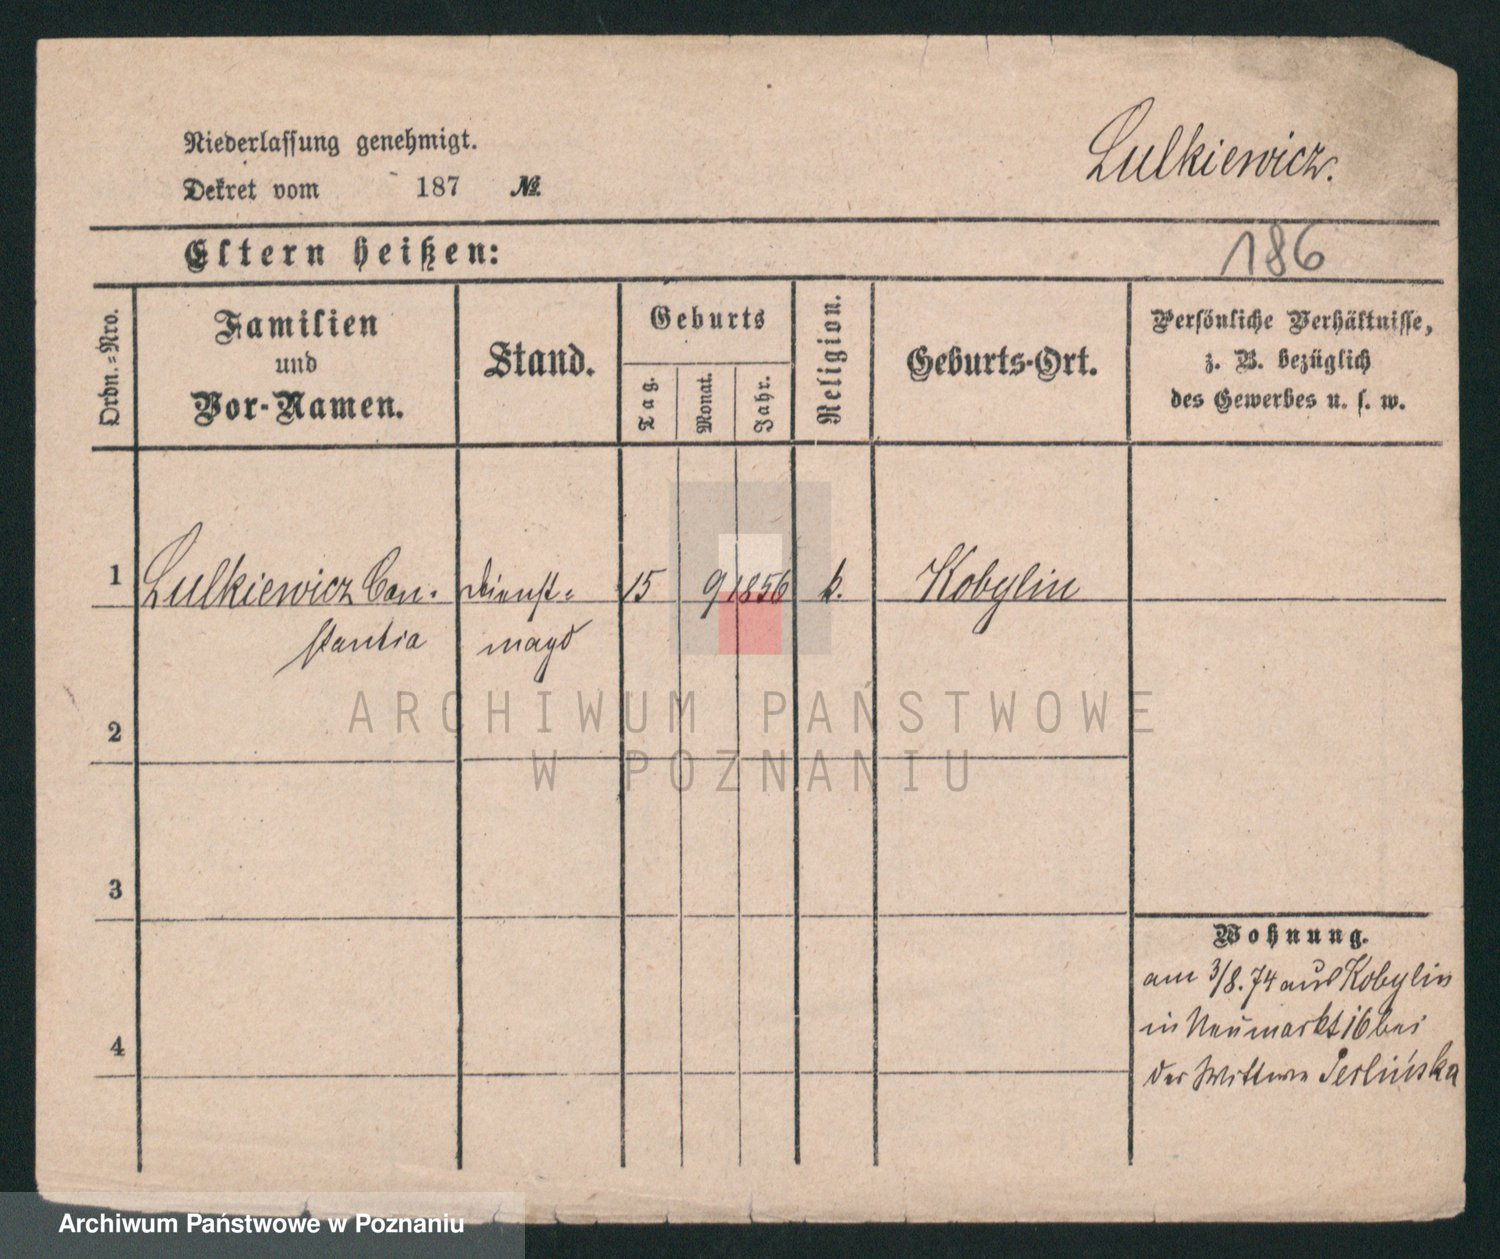 Niederlassung genehmigt.
Dekret vom 187 №
Lulkiewicz.
Eltern heißen:
186
Ordn.=Nro.
Familien
und
Vor-Namen.
Stand.
Geburts
Tag.
Monat.
Jahr.
Religion.
Geburts-Ort.
Persönliche Verhältnisse,
z. B. bezüglich
des Gewerbes u. s. w.
1 Lulkiewicz Con- Dienst= 15 9 1856 k. Kobylin
stantia magd
2
3
4
Wohnung.
am 3/8. 74 aus Kobylin
in Neumarkt 16 bei
der Wittwe Perlińska
ARCHIWUM PAŃSTWOWE
W POZNANIU
Archiwum Państwowe w Poznaniu